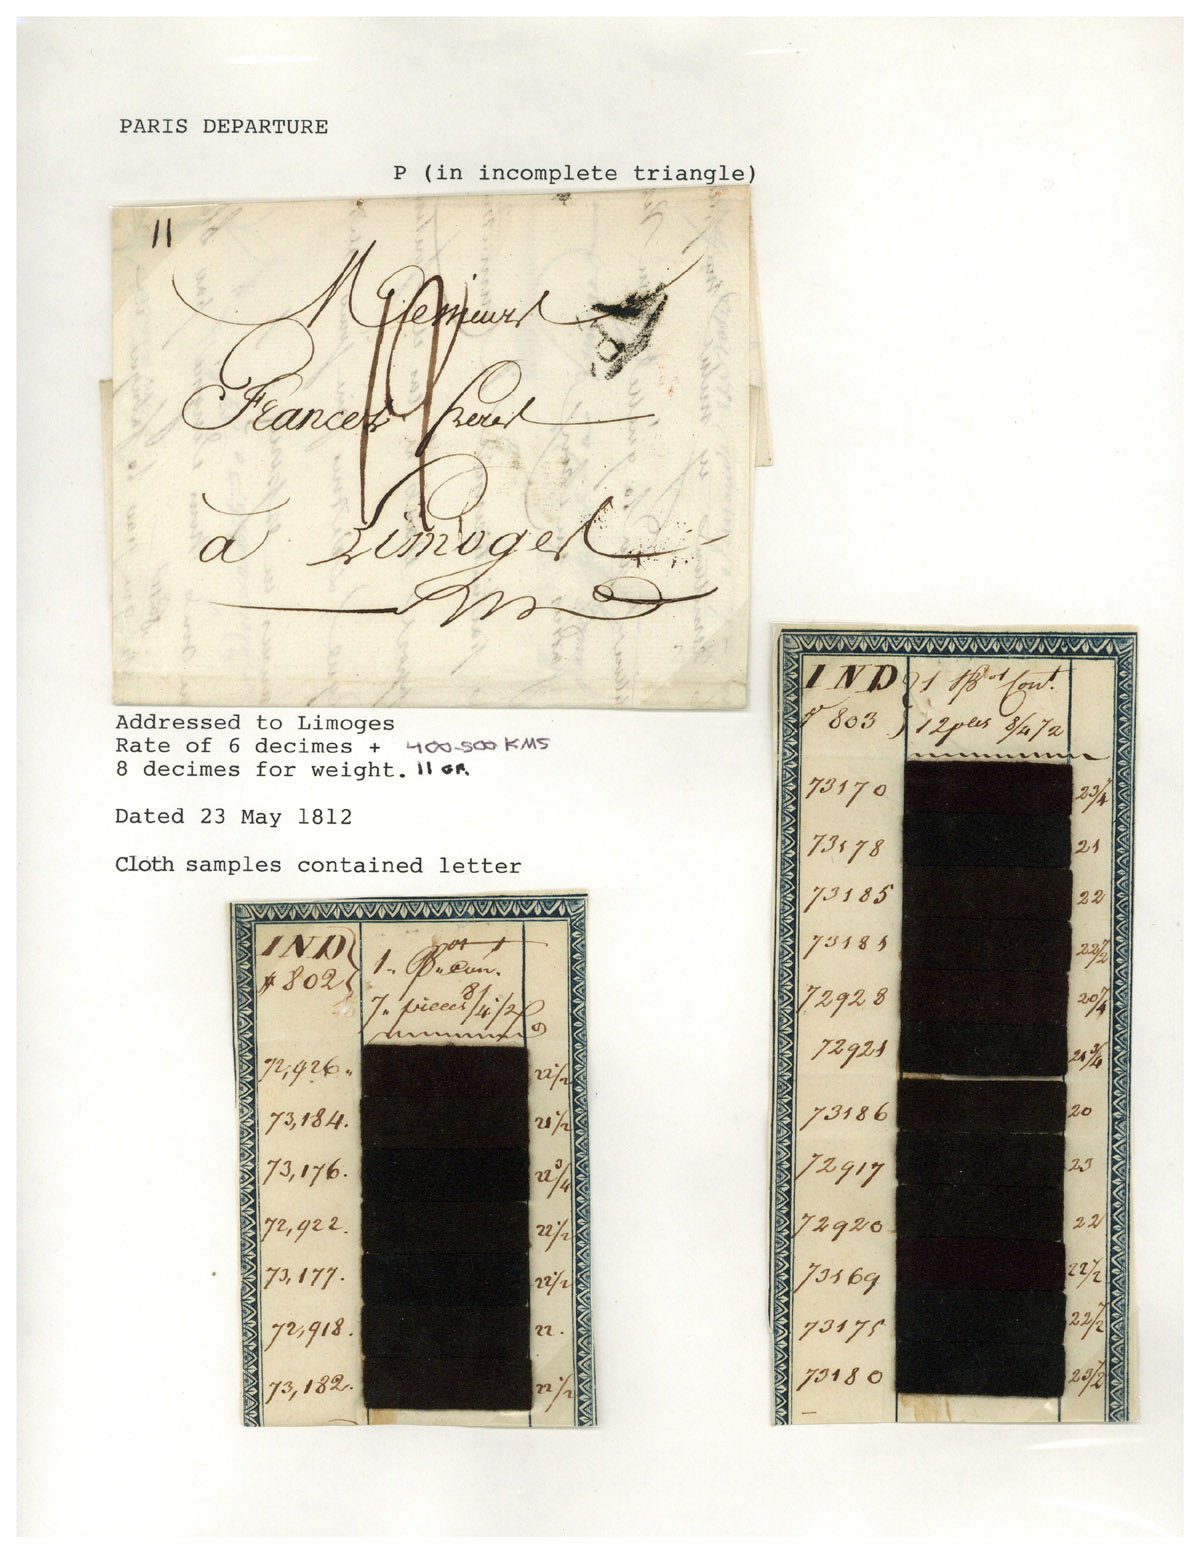 PARIS DEPARTURE
P (in incomplete triangle)
11
Messieurs
P
Frances freres
a Limoges
Addressed to Limoges
Rate of 6 decimes + 400-500 KMS
8 decimes for weight. 11 GR.
Dated 23 May 1812
Cloth samples contained letter
IND
# 802
1.
7,, pieces 8/4 1/2
72,926.. 22 1/2
73,184. 21 1/2
73,176. 22 3/4
72,922. 22 1/2
73,177. 22 1/2
72,918. 22.
73,182. 22 1/2
IND
803
1
12 8/4 1/2
73170 23 1/4
73178 21
73185 22
73181 22 1/2
72928 20 1/4
72921 21 3/4
73186 20
72917 23
72920 22
73169 22 1/2
73175 22 1/2
73180 23 1/2